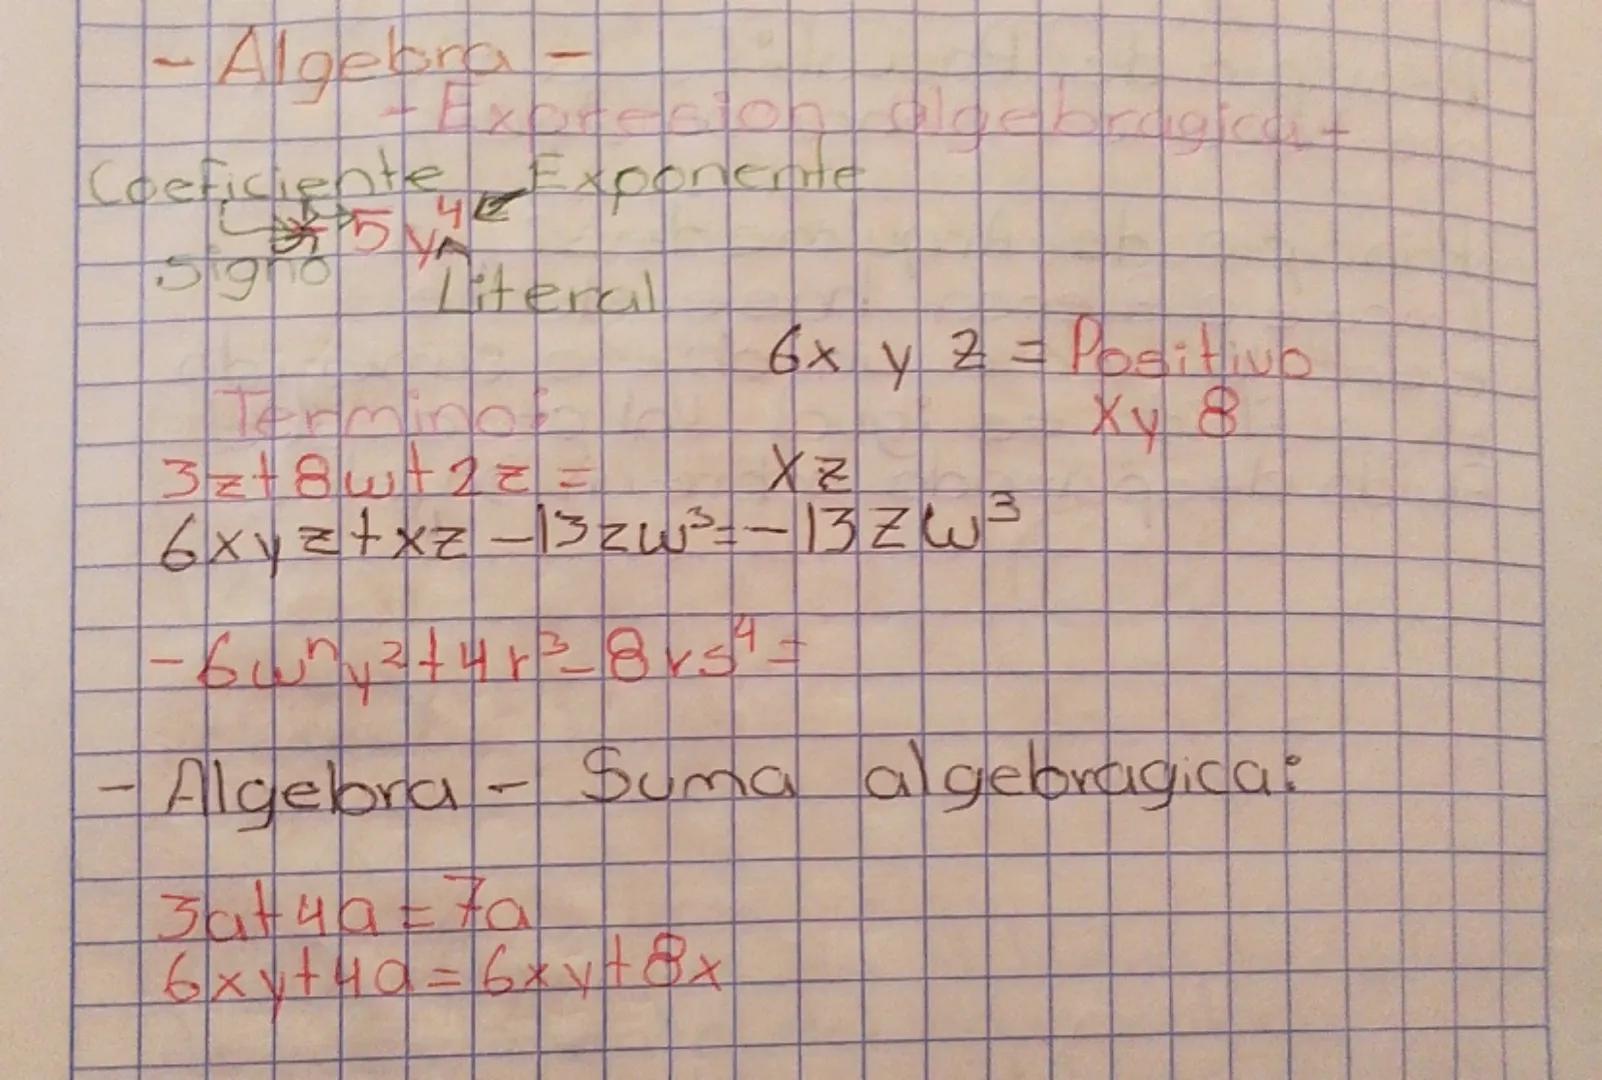 - Algebra -
- Expresion algebragica -
Coeficiente Exponente
5y⁴
Signo
Literal
6x y z = Positivo
Terminos
xy 8
3z+8w+2z = xz
6xyz+xz-13zw³=-13zw³
-6wⁿy²+4r³-8rs⁴=
- Algebra - Suma algebragica:
3a+4a=7a
6xy+4a=6xy+8x